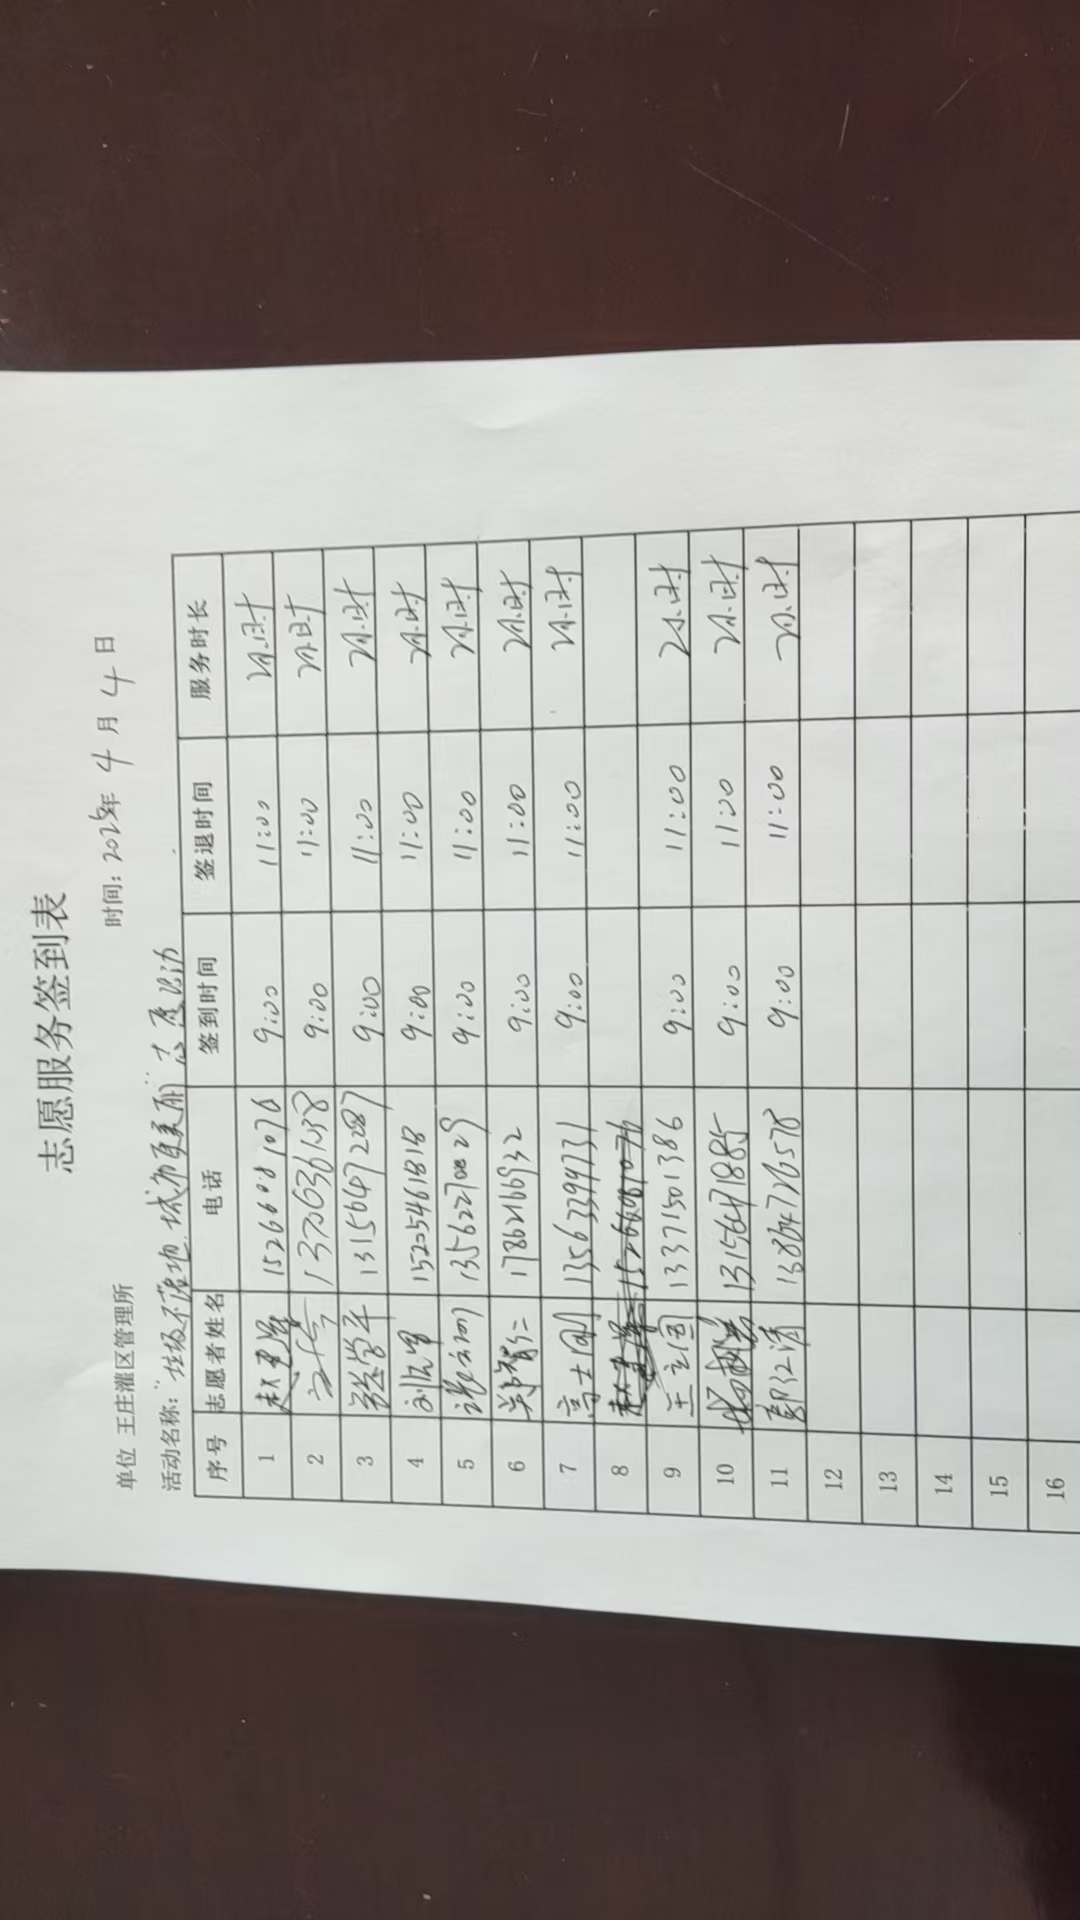 志愿服务签到表
单位 王庄灌区管理所 时间: 年 4 月 4 日
活动名称:"垃圾不落地.城市更美丽"志愿活动
序号 志愿者姓名 电话 签到时间 签退时间 服务时长
1 15266081076 9:00 11:00 2小时
2 9:00 11:00 2小时
3 张学军 13156472287 9:00 11:00 2小时
4 15205461818 9:00 11:00 2小时
5 13562270029 9:00 11:00 2小时
6 17862166932 9:00 11:00 2小时
7 高士刚 13563399731 9:00 11:00 2小时
8 15266081076
9 王立国 13371501386 9:00 11:00 2小时
10 13156471885 9:00 11:00 2小时
11 鄢江涛 13864726578 9:00 11:00 2小时
12
13
14
15
16